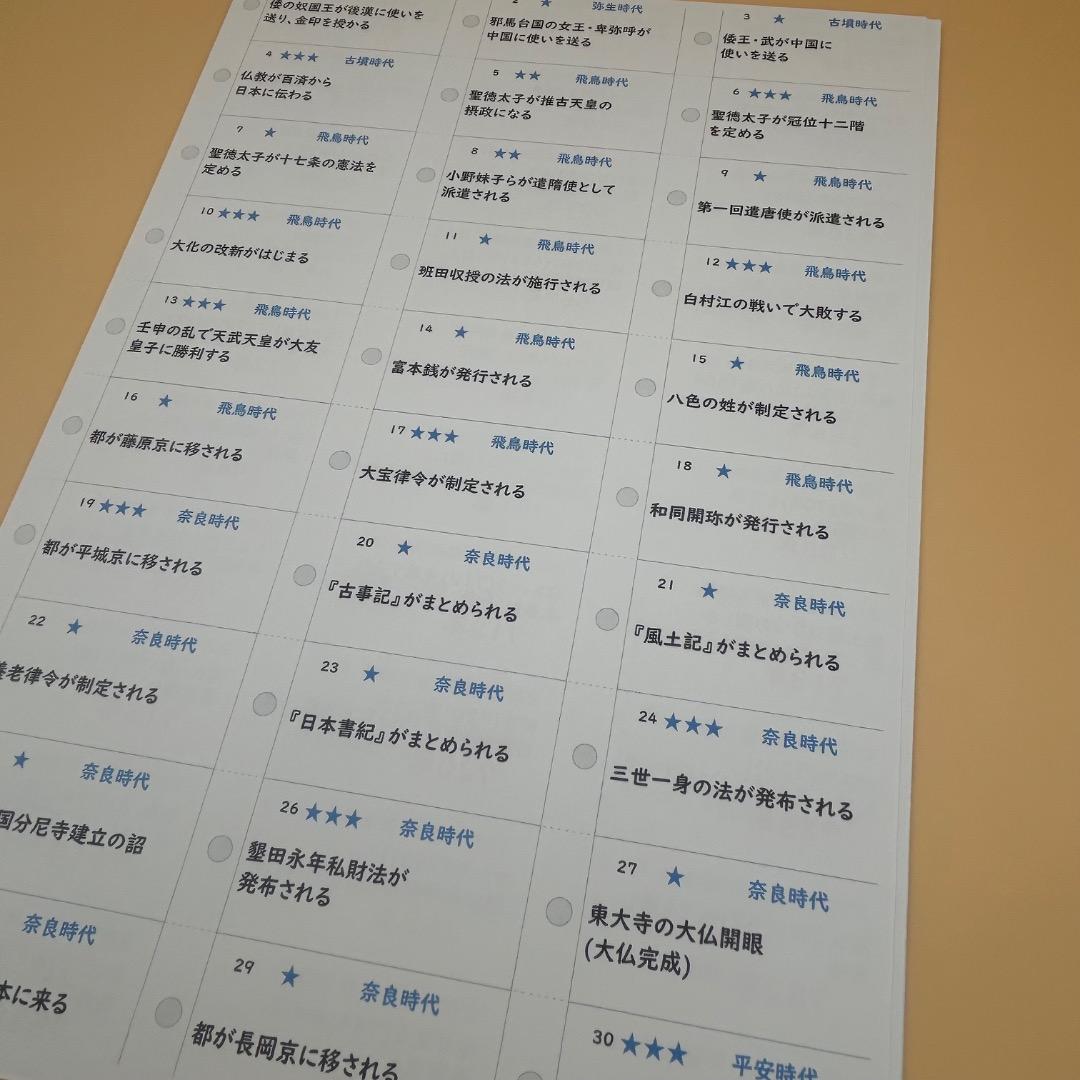 倭の奴国王が後漢に使いを
送り、金印を授かる
2 ★ 弥生時代
邪馬台国の女王・卑弥呼が
中国に使いを送る
3 ★ 古墳時代
倭王・武が中国に
使いを送る
4 ★★★ 古墳時代
仏教が百済から
日本に伝わる
5 ★★ 飛鳥時代
聖徳太子が推古天皇の
摂政になる
6 ★★★ 飛鳥時代
聖徳太子が冠位十二階
を定める
7 ★ 飛鳥時代
聖徳太子が十七条の憲法を
定める
8 ★★ 飛鳥時代
小野妹子らが遣隋使として
派遣される
9 ★ 飛鳥時代
第一回遣唐使が派遣される
10 ★★★ 飛鳥時代
大化の改新がはじまる
11 ★ 飛鳥時代
班田収授の法が施行される
12 ★★★ 飛鳥時代
白村江の戦いで大敗する
13 ★★★ 飛鳥時代
壬申の乱で天武天皇が大友
皇子に勝利する
14 ★ 飛鳥時代
富本銭が発行される
15 ★ 飛鳥時代
八色の姓が制定される
16 ★ 飛鳥時代
都が藤原京に移される
17 ★★★ 飛鳥時代
大宝律令が制定される
18 ★ 飛鳥時代
和同開珎が発行される
19 ★★★ 奈良時代
都が平城京に移される
20 ★ 奈良時代
『古事記』がまとめられる
21 ★ 奈良時代
『風土記』がまとめられる
22 ★ 奈良時代
養老律令が制定される
23 ★ 奈良時代
『日本書紀』がまとめられる
24 ★★★ 奈良時代
三世一身の法が発布される
★ 奈良時代
国分尼寺建立の詔
26 ★★★ 奈良時代
墾田永年私財法が
発布される
27 ★ 奈良時代
東大寺の大仏開眼
(大仏完成)
奈良時代
本に来る
29 ★ 奈良時代
都が長岡京に移される
30 ★★★ 平安時代